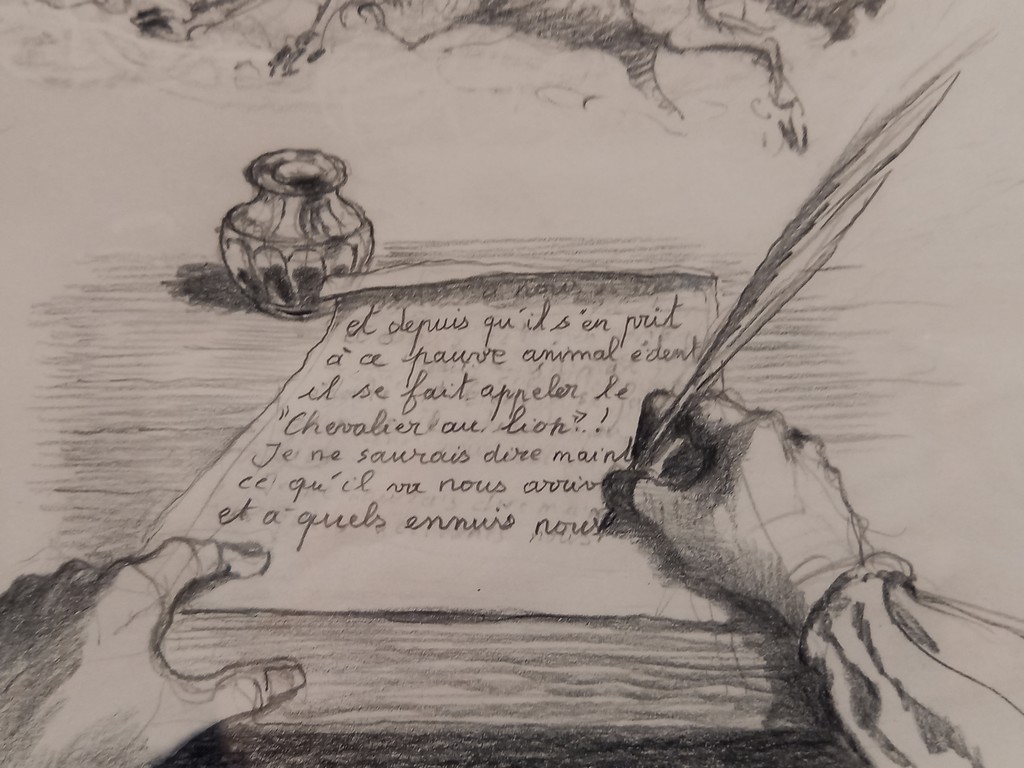 à nous
et depuis qu'il s'en prit
à ce pauvre animal édent
il se fait appeler le
"Chevalier au lion"?!
Je ne saurais dire maint
ce qu'il va nous arriv
et à quels ennuis nous